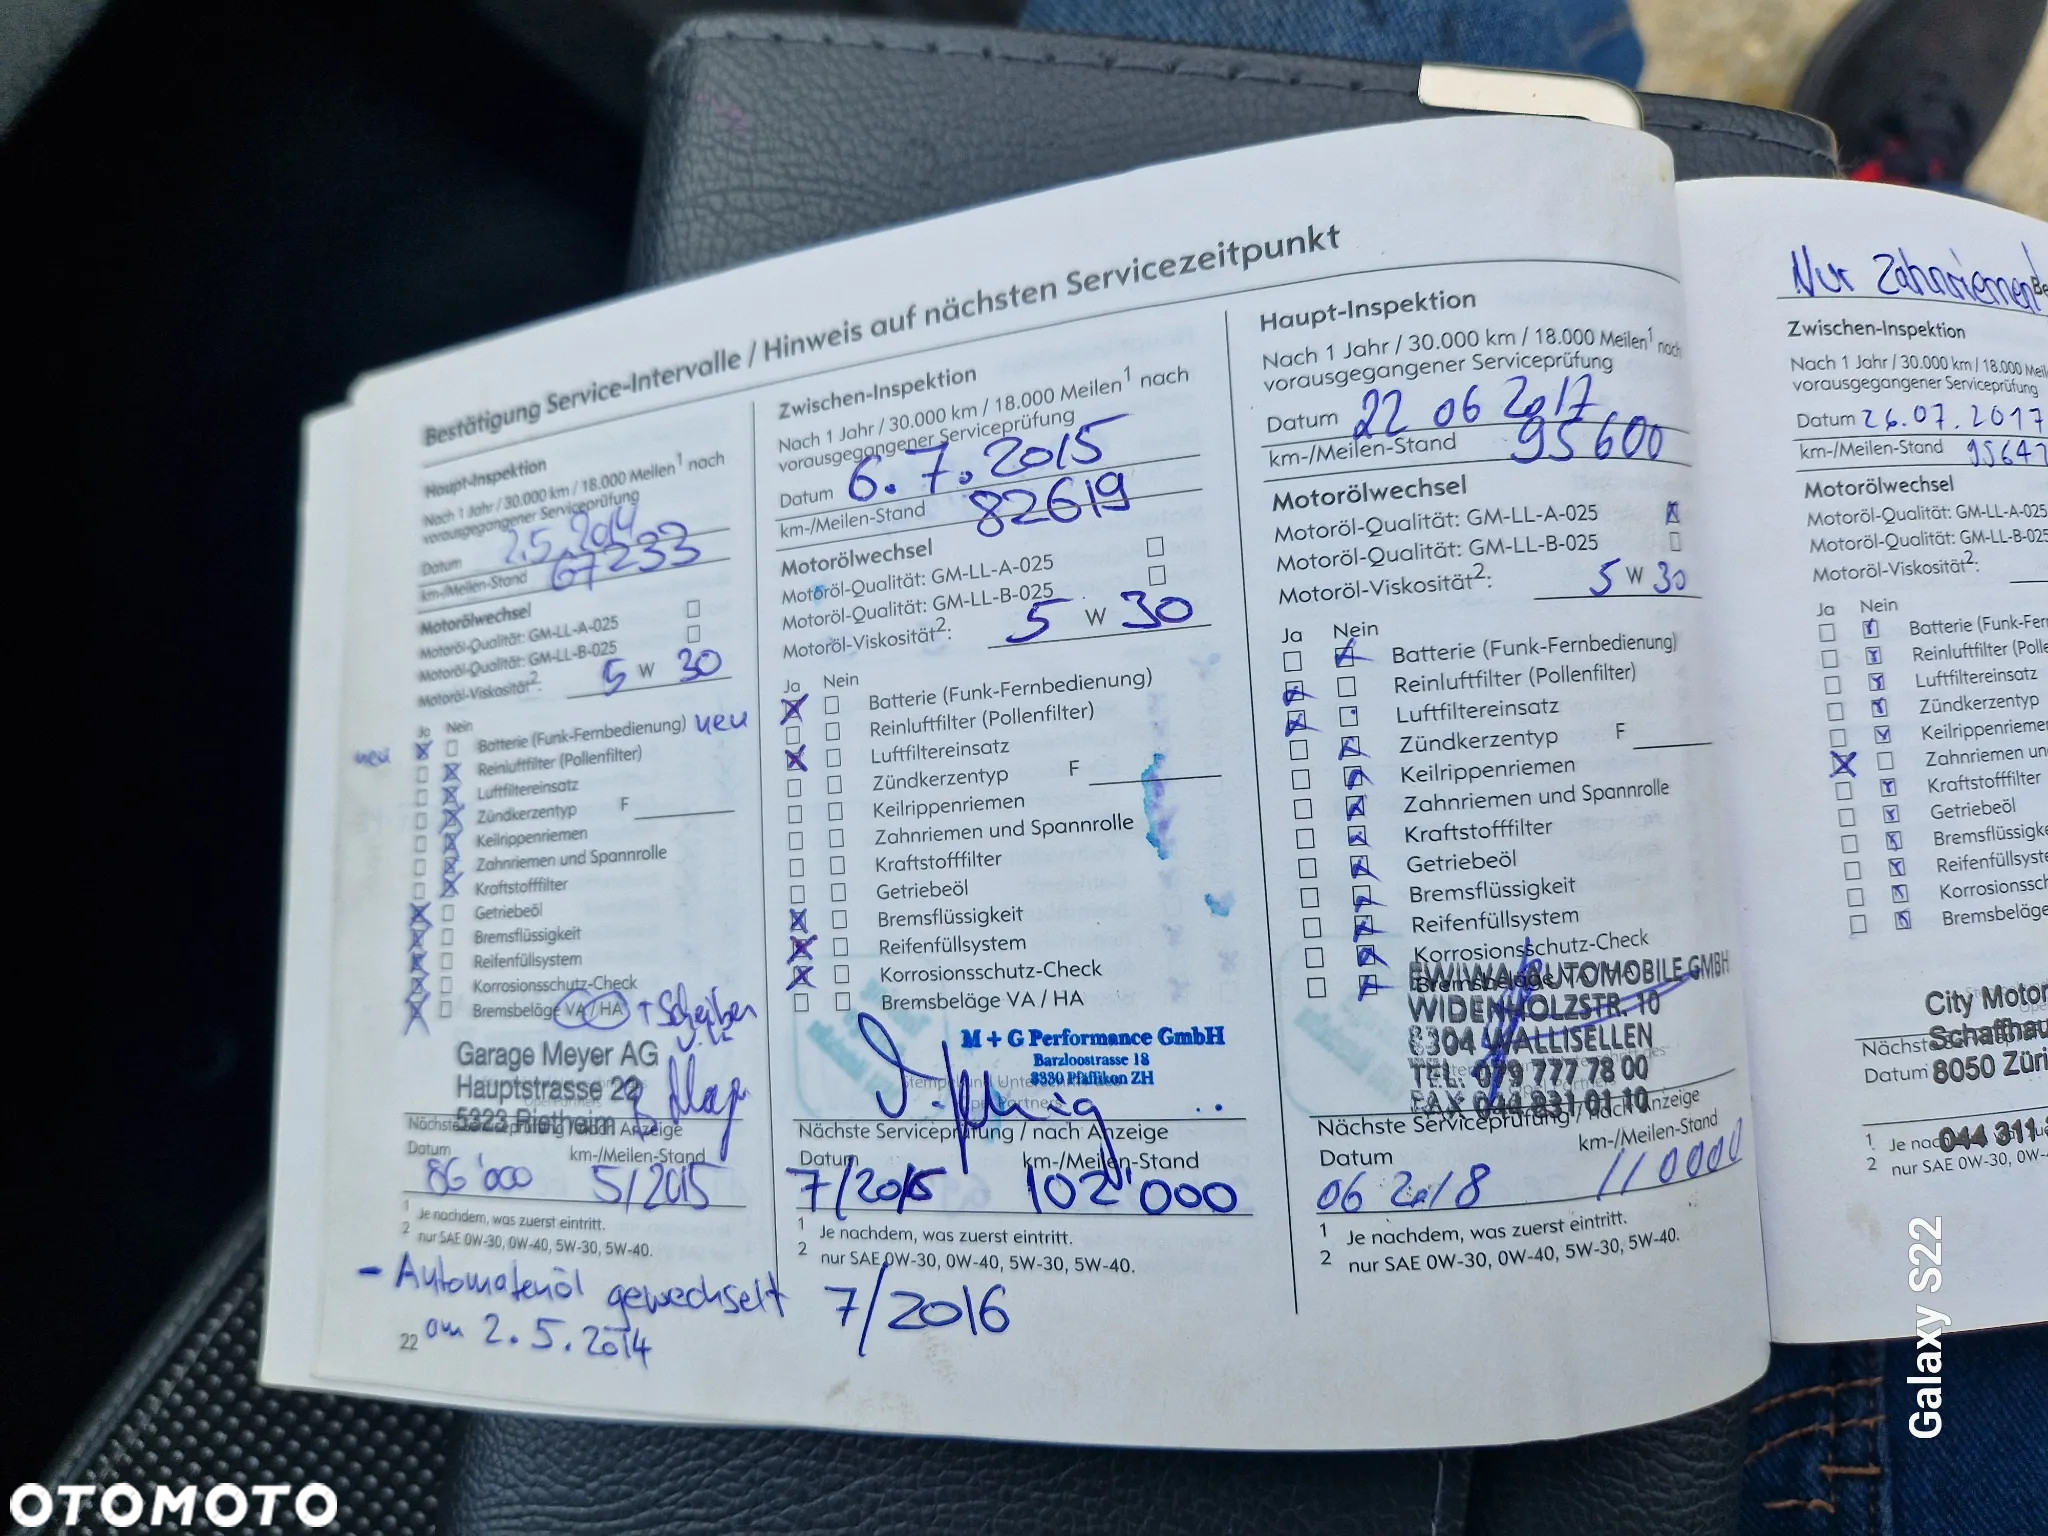 Bestätigung Service-Intervalle / Hinweis auf nächsten Servicezeitpunkt
Haupt-Inspektion
Nach 1 Jahr / 30.000 km / 18.000 Meilen1 nach
vorausgegangener Serviceprüfung
Datum 2.5.2014
km-/Meilen-Stand 67233
Motorölwechsel
Motoröl-Qualität: GM-LL-A-025
Motoröl-Qualität: GM-LL-B-025
Motoröl-Viskosität2: 5 W 30
Ja Nein
neu Batterie (Funk-Fernbedienung) neu
Reinluftfilter (Pollenfilter)
Luftfiltereinsatz
Zündkerzentyp F
Keilrippenriemen
Zahnriemen und Spannrolle
Kraftstofffilter
Getriebeöl
Bremsflüssigkeit
Reifenfüllsystem
Korrosionsschutz-Check
Bremsbeläge VA / HA + Scheiben
Garage Meyer AG
Hauptstrasse 22
5323 Rietheim
Nächste Serviceprüfung / nach Anzeige
Datum km-/Meilen-Stand
86'000 5/2015
1 Je nachdem, was zuerst eintritt.
2 nur SAE 0W-30, 0W-40, 5W-30, 5W-40.
- Automatenöl gewechselt
am 2.5.2014
22
Zwischen-Inspektion
Nach 1 Jahr / 30.000 km / 18.000 Meilen1 nach
vorausgegangener Serviceprüfung
Datum 6.7.2015
km-/Meilen-Stand 82619
Motorölwechsel
Motoröl-Qualität: GM-LL-A-025
Motoröl-Qualität: GM-LL-B-025
Motoröl-Viskosität2: 5 W 30
Ja Nein
Batterie (Funk-Fernbedienung)
Reinluftfilter (Pollenfilter)
Luftfiltereinsatz
Zündkerzentyp F
Keilrippenriemen
Zahnriemen und Spannrolle
Kraftstofffilter
Getriebeöl
Bremsflüssigkeit
Reifenfüllsystem
Korrosionsschutz-Check
Bremsbeläge VA / HA
M + G Performance GmbH
Barzloostrasse 18
8330 Pfäffikon ZH
Nächste Serviceprüfung / nach Anzeige
Datum km-/Meilen-Stand
7/2015 102'000
1 Je nachdem, was zuerst eintritt.
2 nur SAE 0W-30, 0W-40, 5W-30, 5W-40.
7/2016
Haupt-Inspektion
Nach 1 Jahr / 30.000 km / 18.000 Meilen1 nach
vorausgegangener Serviceprüfung
Datum 22 06 2017
km-/Meilen-Stand 95600
Motorölwechsel
Motoröl-Qualität: GM-LL-A-025
Motoröl-Qualität: GM-LL-B-025
Motoröl-Viskosität2: 5 W 30
Ja Nein
Batterie (Funk-Fernbedienung)
Reinluftfilter (Pollenfilter)
Luftfiltereinsatz
Zündkerzentyp F
Keilrippenriemen
Zahnriemen und Spannrolle
Kraftstofffilter
Getriebeöl
Bremsflüssigkeit
Reifenfüllsystem
Korrosionsschutz-Check
Bremsbeläge
EWIWA AUTOMOBILE GMBH
WIDENHOLZSTR. 10
8304 WALLISELLEN
TEL. 079 777 78 00
FAX 044 831 01 10
Nächste Serviceprüfung / nach Anzeige
Datum km-/Meilen-Stand
06 2018 110000
1 Je nachdem, was zuerst eintritt.
2 nur SAE 0W-30, 0W-40, 5W-30, 5W-40.
Nur Zahnriemen
Zwischen-Inspektion
Nach 1 Jahr / 30.000 km / 18.000 Meil
vorausgegangener Serviceprüfung
Datum 26.07.2017
km-/Meilen-Stand 95647
Motorölwechsel
Motoröl-Qualität: GM-LL-A-025
Motoröl-Qualität: GM-LL-B-025
Motoröl-Viskosität2:
Ja Nein
Batterie (Funk-Fern
Reinluftfilter (Polle
Luftfiltereinsatz
Zündkerzentyp
Keilrippenriemen
Zahnriemen un
Kraftstofffilter
Getriebeöl
Bremsflüssigke
Reifenfüllsyste
Korrosionssch
Bremsbeläge
City Motor
Schaffhau
8050 Züri
Nächste
Datum
044 311
1 Je nac
2 nur SAE 0W-30, 0W-
Galaxy S22
OTOMOTO